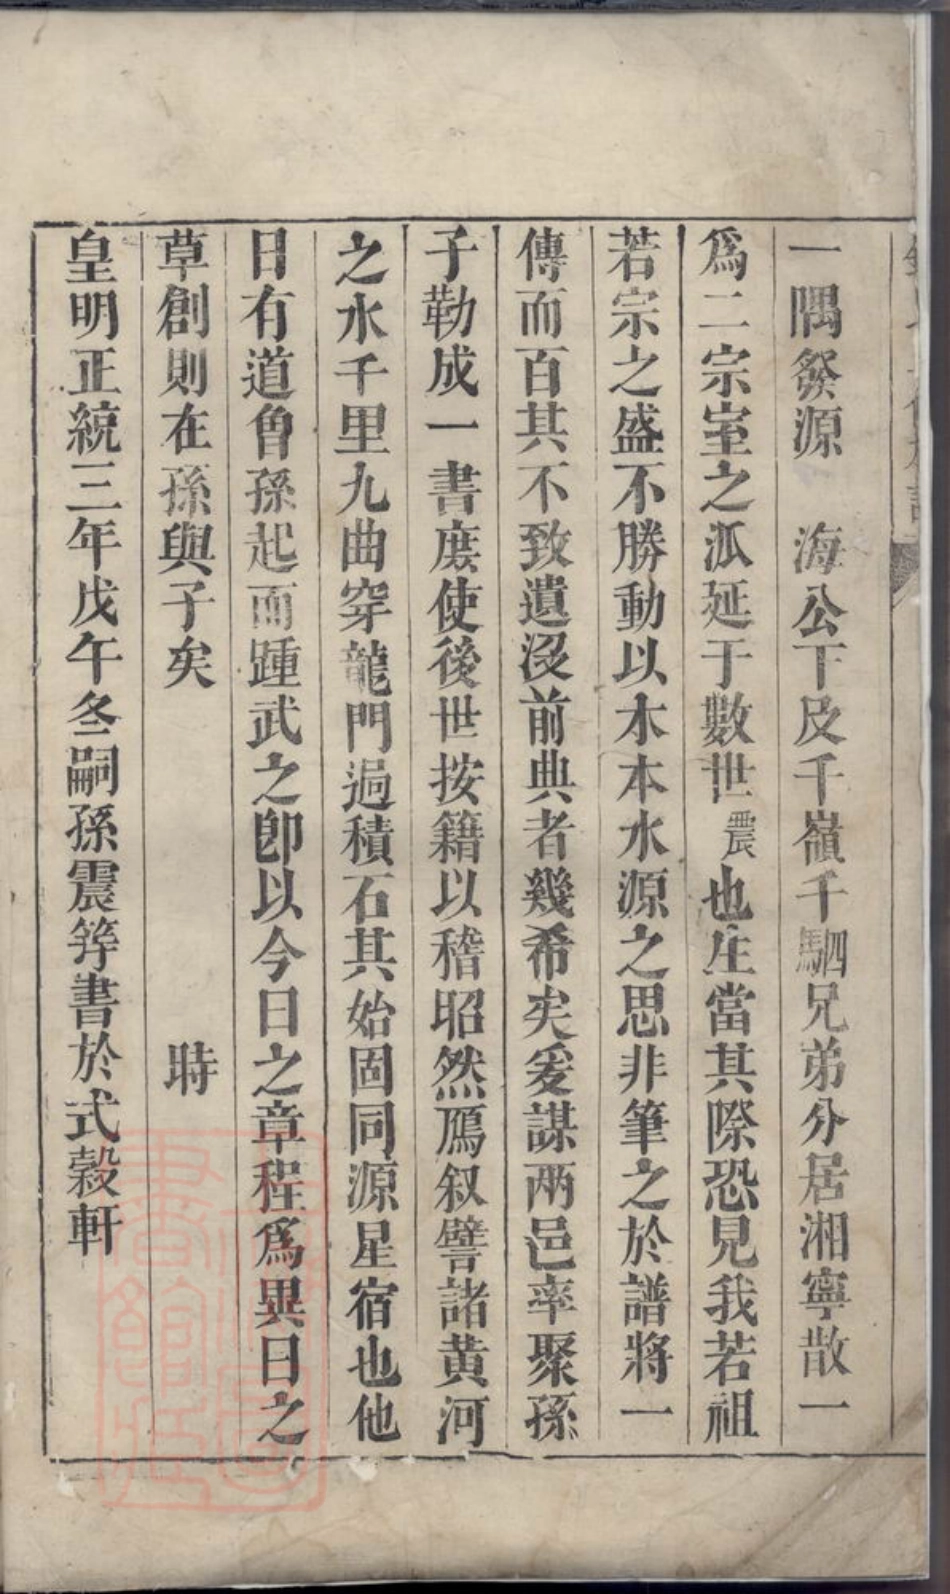 一隅發源　海公下及千嶺千駟兄弟分居湘寧散一
爲二宗室之派延于數世震也生當其際恐見我若祖
若宗之盛不勝動以木本水源之思非筆之於譜將一
傳而百其不致遺沒前典者幾希矣爰謀兩邑率聚孫
子勒成一書庶使後世按籍以稽昭然鴈叙譬諸黄河
之水千里九曲穿龍門過積石其始固同源星宿也他
日有道曾孫起而踵武之卽以今日之章程爲異日之
草創則在孫與子矣　　　　　　時
皇明正統三年戊午冬嗣孫震等書於式穀軒